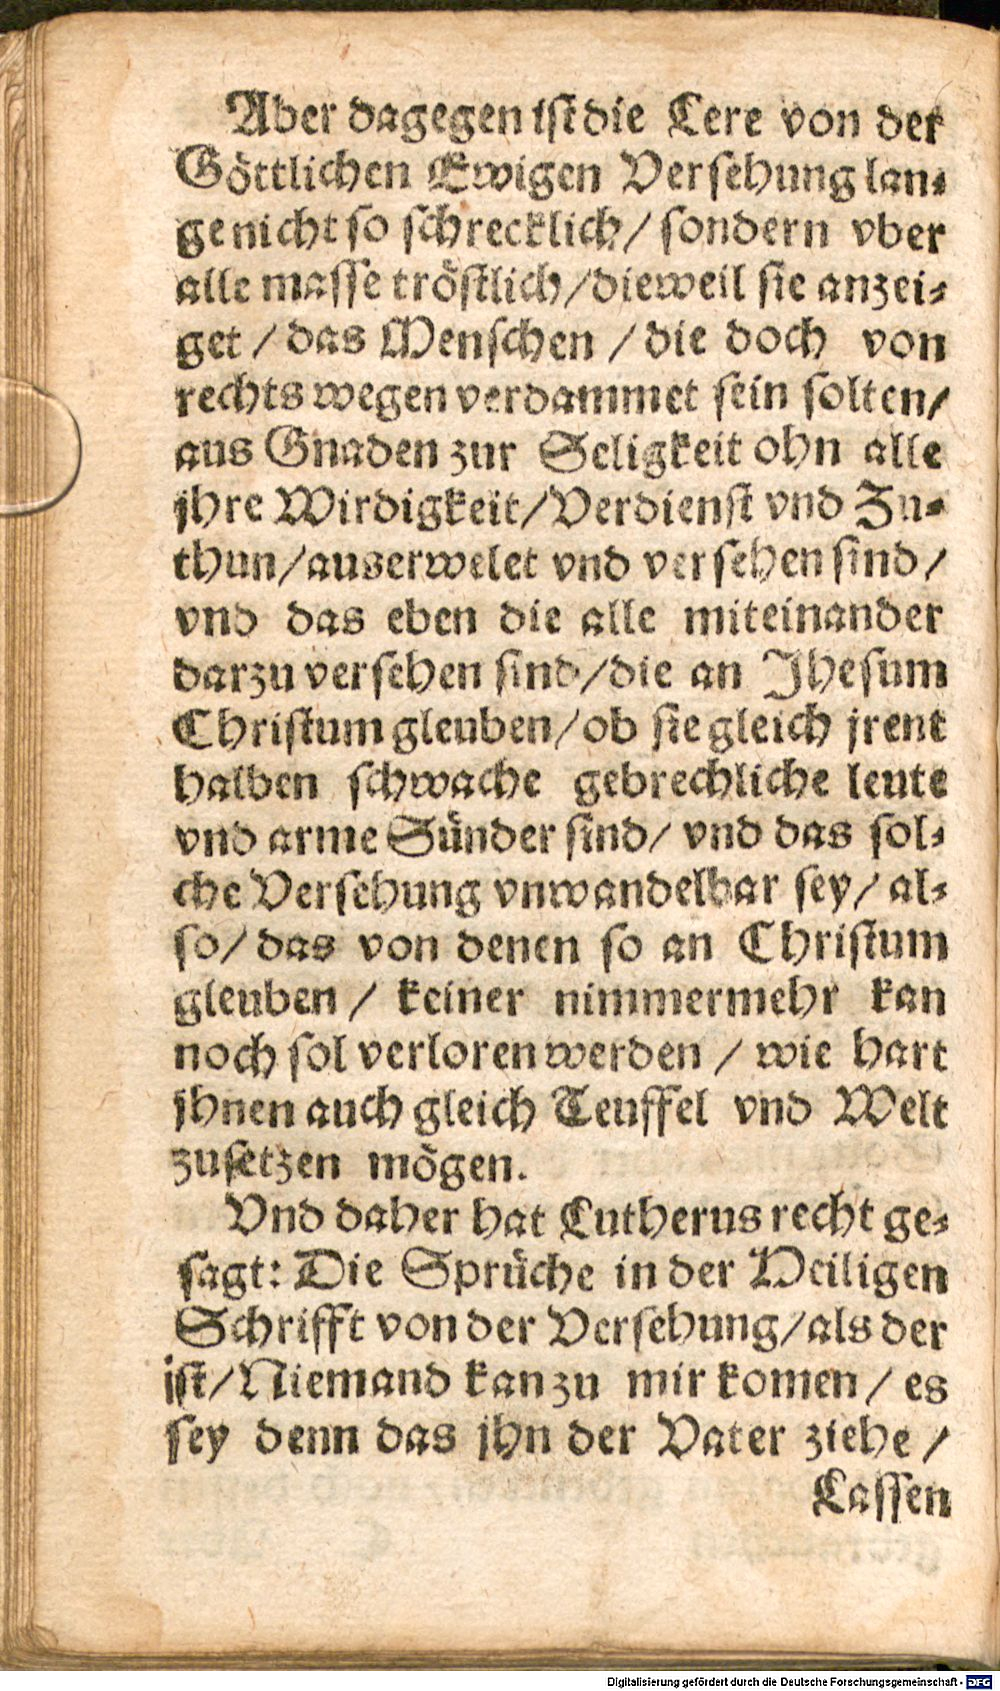 Aber dagegen ist die Lere von der
Göttlichen Ewigen Versehung lan⸗
ge nicht so schrecklich/ sondern vber
alle masse tröstlich/dieweil sie anzei⸗
get / das Menschen / die doch von
rechts wegen verdammet sein solten/
aus Gnaden zur Seligkeit ohn alle
jhre Wirdigkeit/Verdienst vnd Zu⸗
thun/auserwelet vnd versehen sind/
vnd das eben die alle miteinander
darzu versehen sind/die an Jhesum
Christum gleuben/ob sie gleich jrent
halben schwache gebrechliche leute
vnd arme Sünder sind/ vnd das sol⸗
che Versehung vnwandelbar sey/ al⸗
so/ das von denen so an Christum
gleuben / keiner nimmermehr kan
noch sol verloren werden / wie hart
jhnen auch gleich Teuffel vnd Welt
zusetzen mögen.
Vnd daher hat Lutherus recht ge⸗
sagt: Die Sprüche in der Heiligen
Schrifft von der Versehung/als der
ist/Niemand kan zu mir komen/ es
sey denn das jhn der Vater ziehe /
Lassen
Digitalisierung gefördert durch die Deutsche Forschungsgemeinschaft - DFG